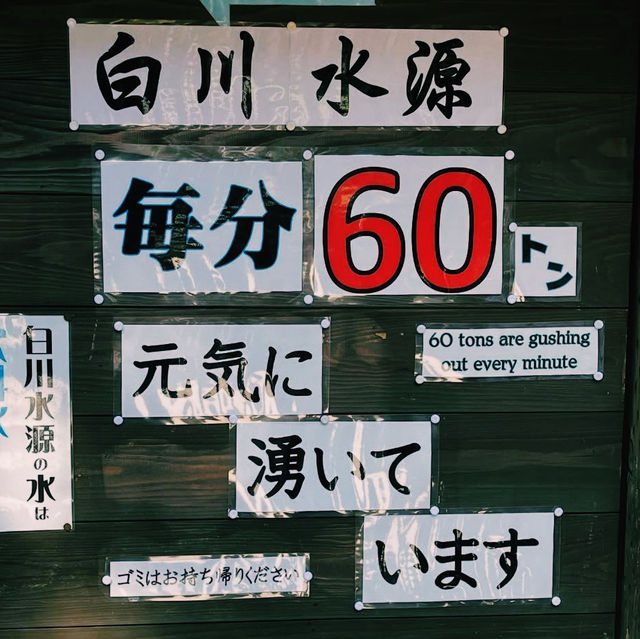 白川水源
毎分60トン
元気に
60 tons are gushing
out every minute
湧いて
います
白川水源の水は
ゴミはお持ち帰りください